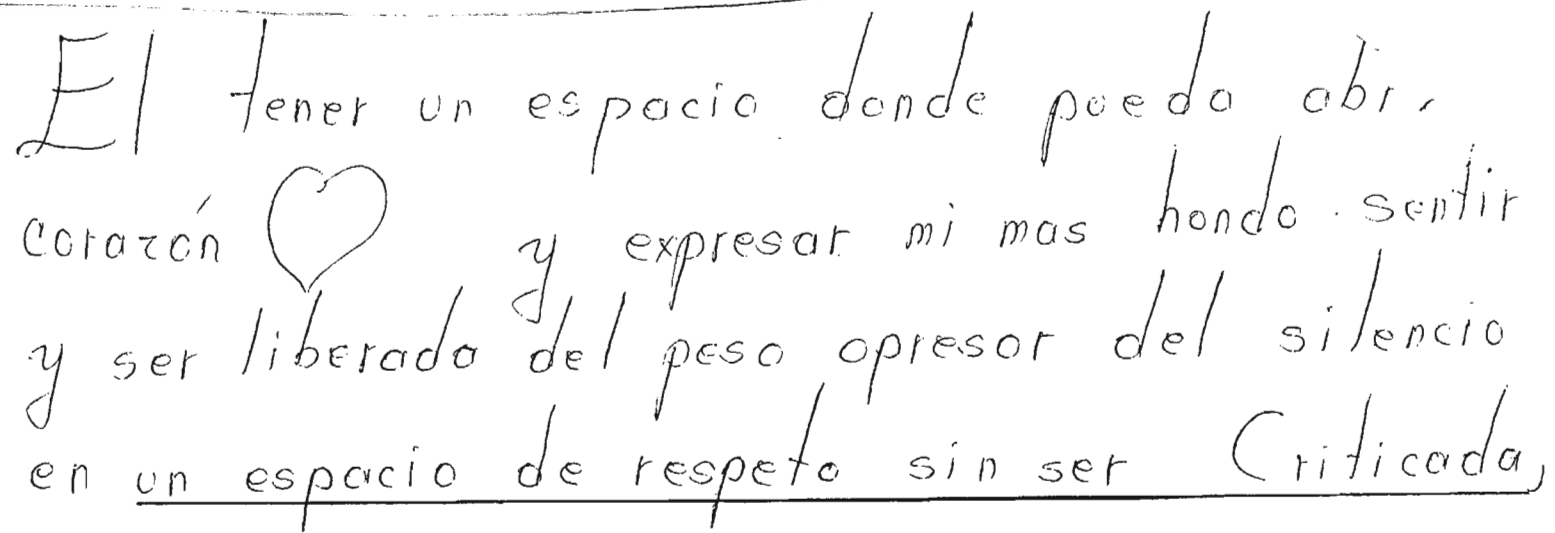 El tener un espacio donde pueda abrir
corazón y expresar mi mas hondo sentir
y ser liberada del peso opresor del silencio
en un espacio de respeto sin ser Criticada,